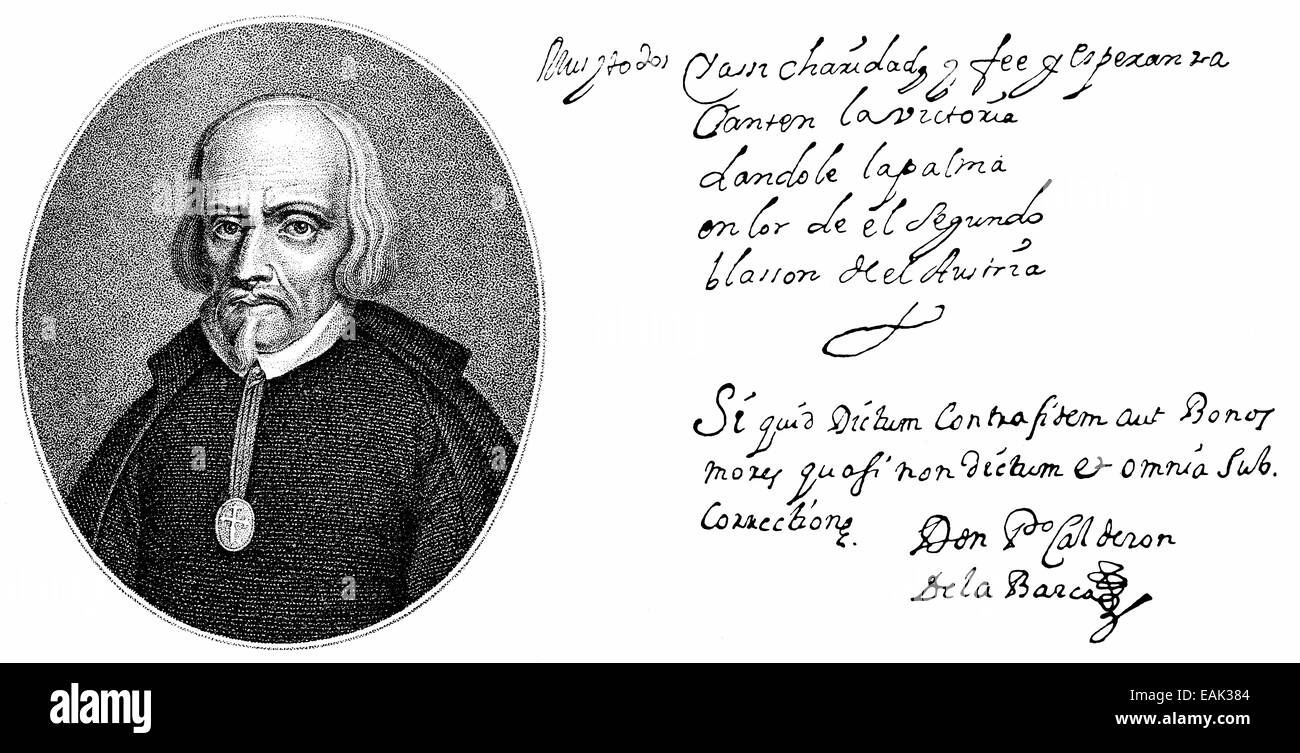 Mus y todos Y assi charidad y fee y esperanza
Canten la victoria
dandole la palma
en lor de el Segundo
blasson de el Austria
Si quid Dictum Contra fidem aut Bonos
mores quasi non dictum et omnia Sub.
Correctione.
Don Pº Calderon
De la Barca
alamy
Image ID: EAK384
www.alamy.com